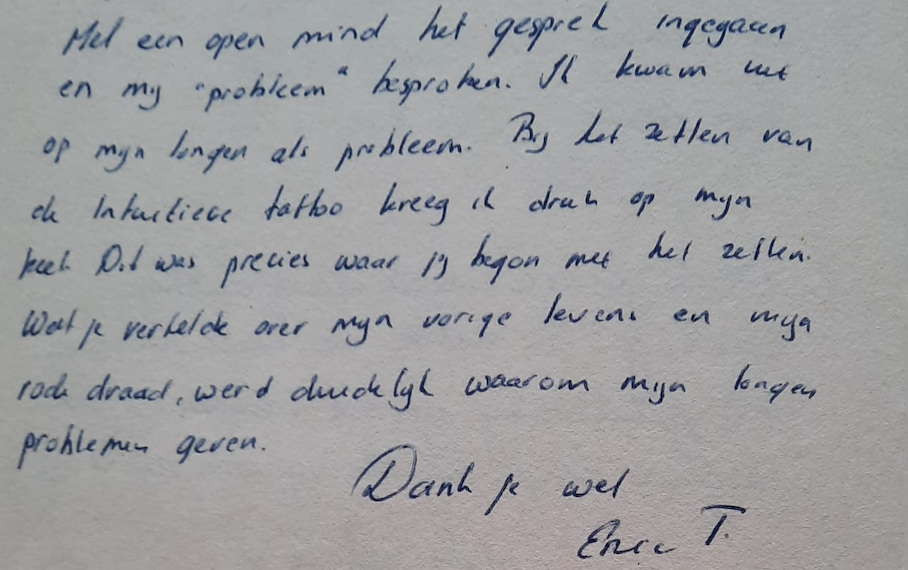 Met een open mind het gesprek ingegaan
en mijn "probleem" besproken. Ik kwam uit
op mijn longen als probleem. Bij het zetten van
de Intuitieve tattoo kreeg ik druk op mijn
keel. Dit was precies waar jij begon met het zetten.
Wat je vertelde over mijn vorige levens en mijn
rode draad, werd duidelijk waarom mijn longen
problemen geven.
Dank je wel
T.